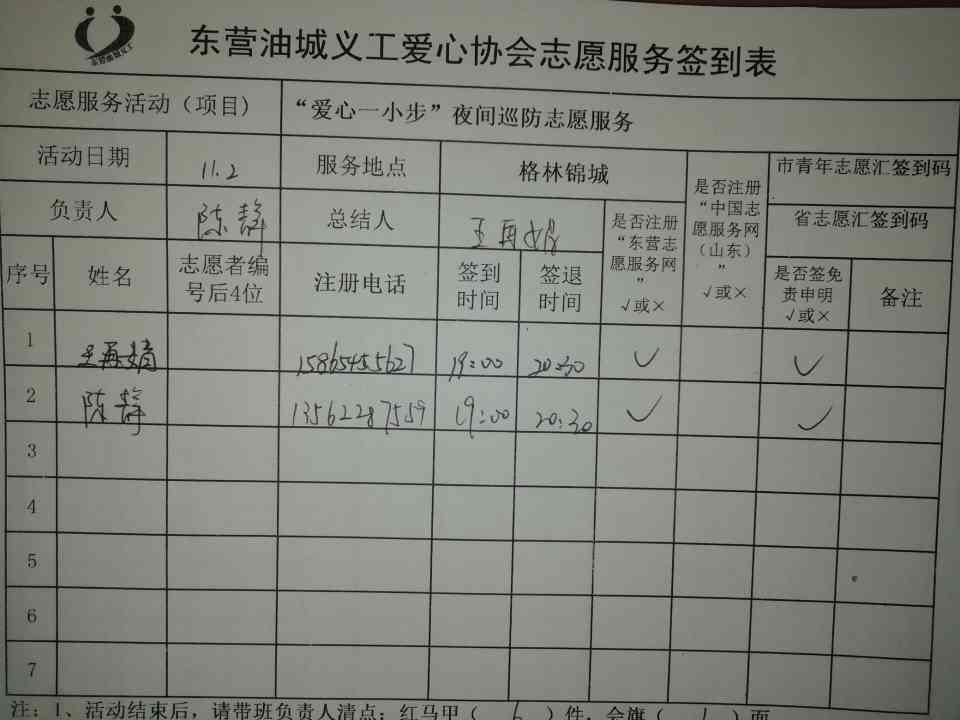 东营油城义工
东营油城义工爱心协会志愿服务签到表
志愿服务活动（项目） “爱心一小步”夜间巡防志愿服务
活动日期 11.2 服务地点 格林锦城 是否注册“中国志愿服务网（山东）” √或× 市青年志愿汇签到码
负责人 陈静 总结人 王再娟 是否注册“东营志愿服务网” √或× 省志愿汇签到码
序号 姓名 志愿者编号后4位 注册电话 签到时间 签退时间 是否签免责申明 √或× 备注
1 王再娟 15865455627 19:00 20:30 √ √
2 陈静 13562287559 19:00 20:30 √ √
3
4
5
6
7
注：1、活动结束后，请带班负责人清点：红马甲（ 6 ）件，会旗（ 1 ）面